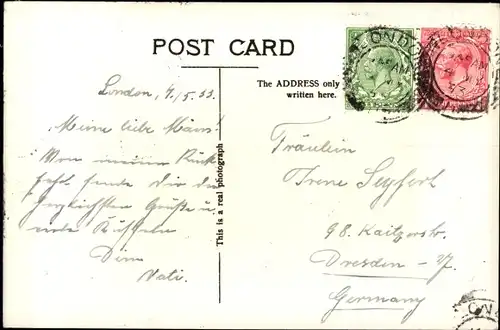 POST CARD
The ADDRESS only
written here.
London, 9/5.33.
Meine liebe Mausi!
Von meiner Rück
fahrt sende Dir die
herzlichsten Grüße u.
viele Küsse
Dein
Vati.
This is a real photograph
Fräulein
Irene Seyfert
98. Kaitzerstr.
Dresden
Germany
LONDON